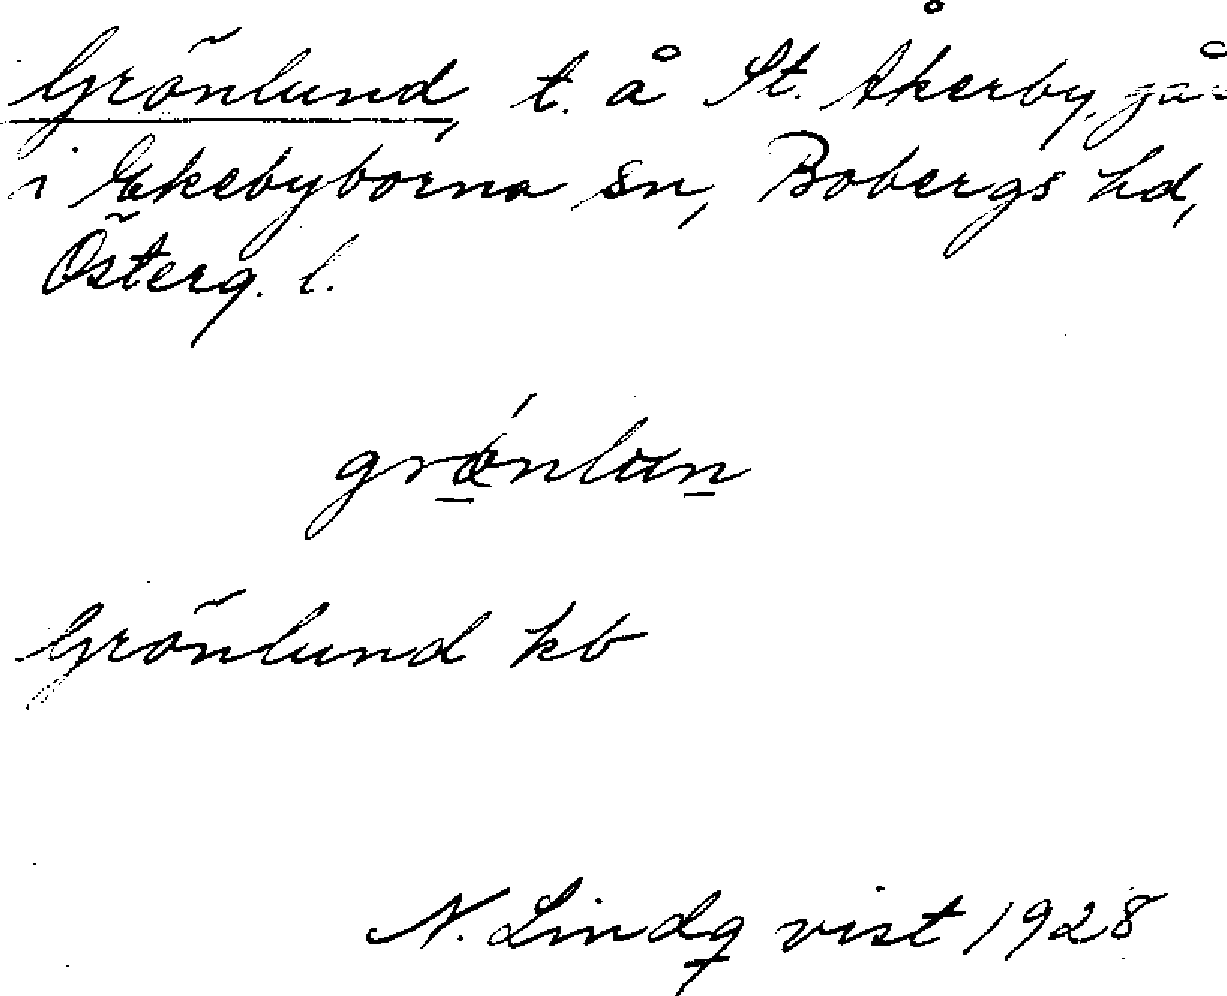 Grönlund, t. å St. Åkerby, går
i Ekebyborna sn, Bobergs hd,
Österg. l.
Grönlund kb
N. Lindqvist 1928